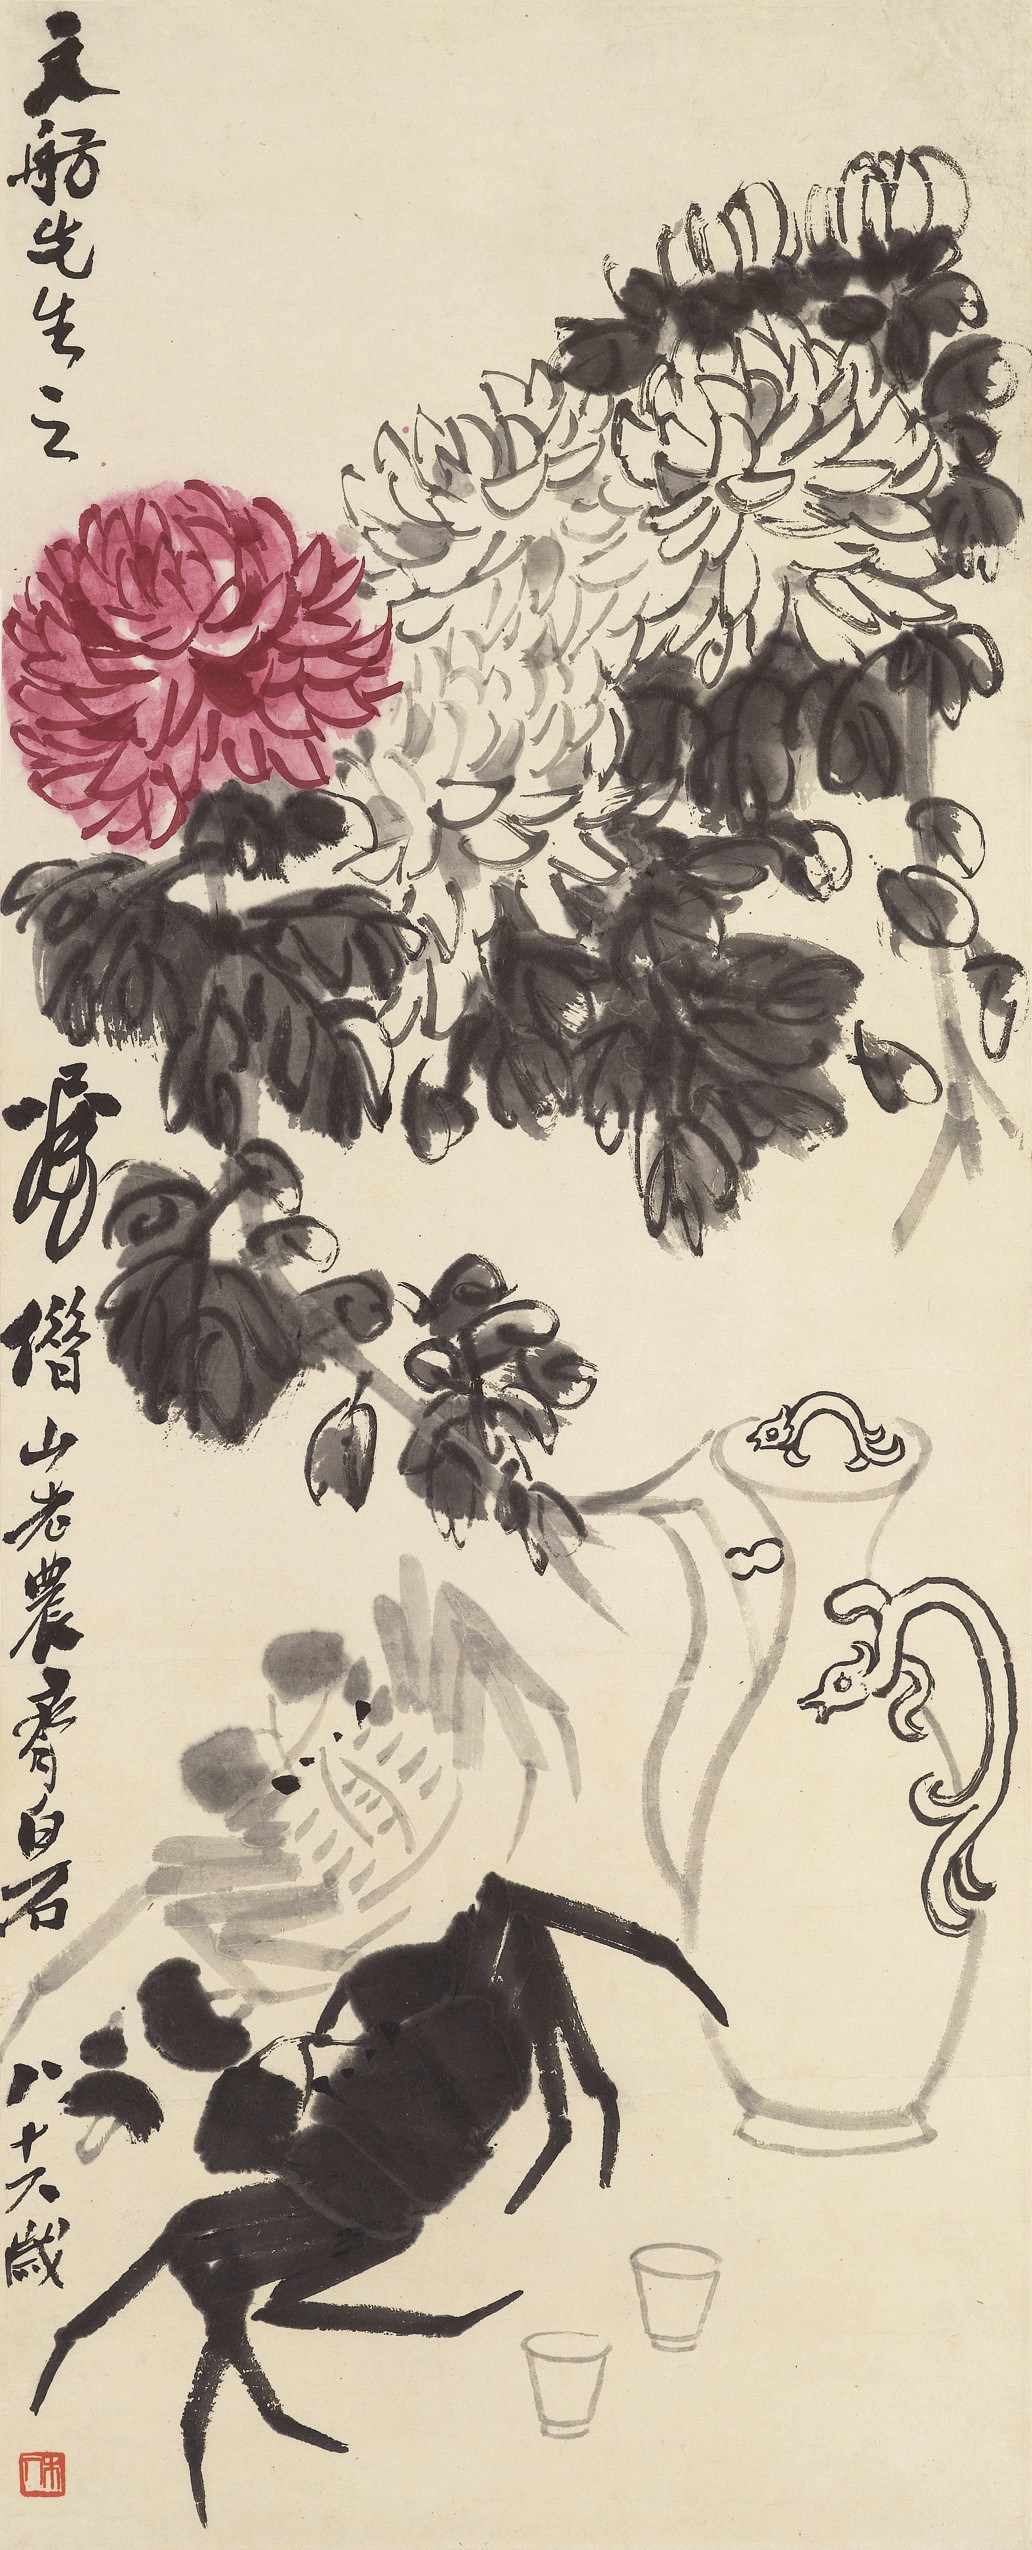 文舫先生之
屬借山老農齊白石
八十六歲
木人